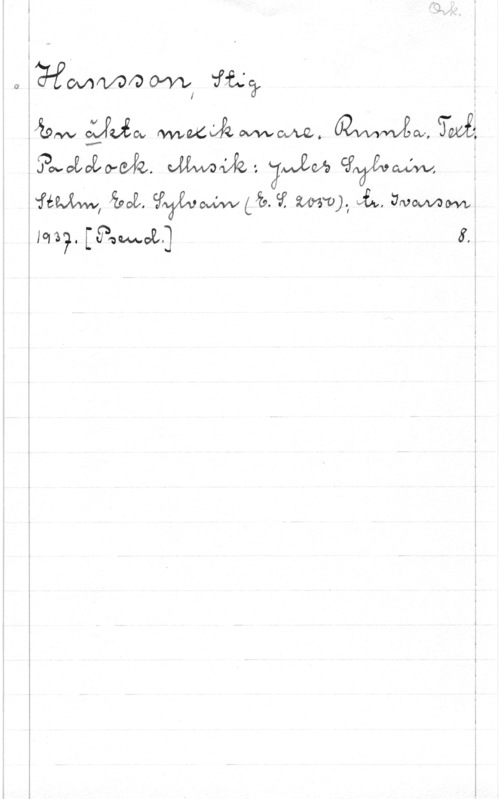 Ork.
Hansson, Stig
En äkta mexikanare. Rumba. Text:
Paddock. Musik: Jules Sylvain.
Sthlm, Ed. Sylvain (E. S. 2050); tr. Ivarson
1937. [Pseud.] 8.